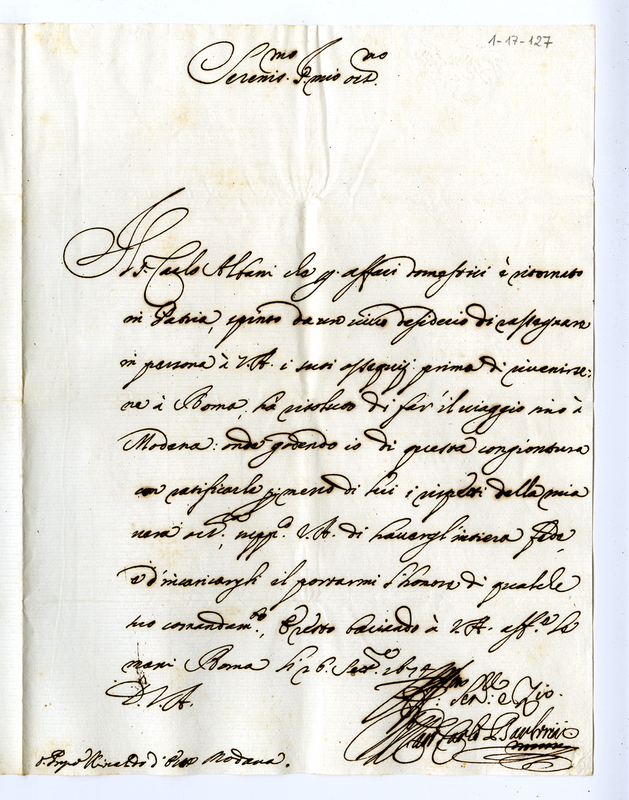 1-17-127
Serenis.mo P. mio oss.mo
Il S.r Carlo Albani che p. affari domestici è ritornato
in Patria, spinto da un vivo desiderio di rassegnare
in persona à V.A. i suoi ossequij prima di rivenirse:
ne à Roma, hà risoluto di far' il viaggio sino à
Modena: onde godendo io di questa congiontura
con ratificarle p. mezzo di lui i rispetti della mia
vera, supp.co V.A. di havergl' intiera fede,
e d'incaricargli il portarmi l'honore di qualche
suo comandam.to, e resto baciando à V.A. aff.te le
mani Roma li 26
D.V.A.
Ser.re e Zio
Carlo Barberini
Rinaldo d'Este Modana.